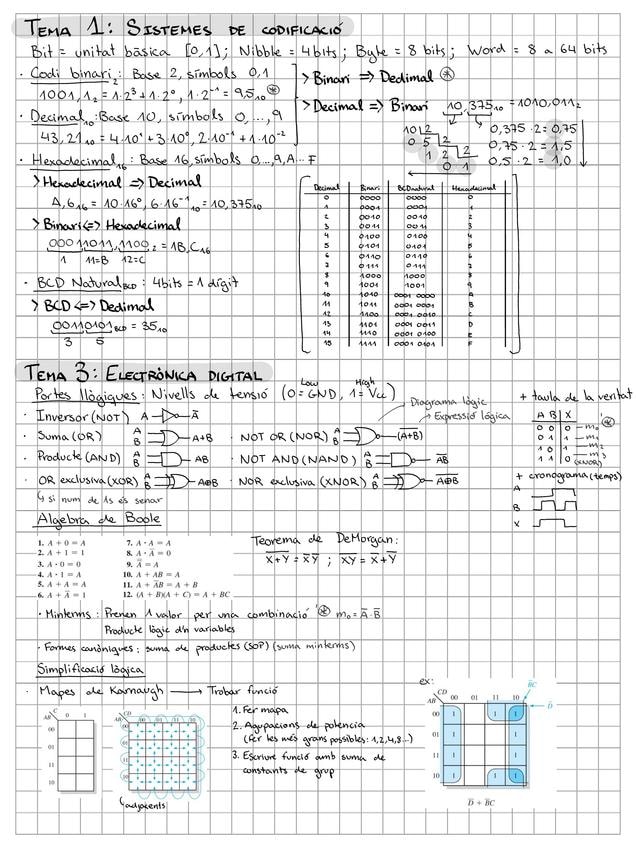 TEMA 1: SISTEMES DE CODIFICACIÓ
Bit = unitat bàsica [0,1]; Nibble = 4 bits; Byte = 8 bits; Word = 8 a 64 bits
· Codi binari₂: Base 2, símbols 0,1
1001,1₂ = 1·2³ + 1·2⁰, 1·2⁻¹ = 9,5₁₀ *
> Binari => Dedimal *
> Decimal => Binari 10,375₁₀ = 1010,011₂
· Decimal₁₀: Base 10, símbols 0,...,9
43,21₁₀ = 4·10¹ + 3·10⁰, 2·10⁻¹ + 1·10⁻²
10 2
0 5 2
1 2 2
0 1
0,375 · 2 = 0,75
0,75 · 2 = 1,5
0,5 · 2 = 1,0
· Hexadecimal₁₆: Base 16, símbols 0,...,9, A... F
> Hexadecimal => Decimal
A,6₁₆ = 10·16⁰, 6·16⁻¹₁₀ = 10,375₁₀
> Binari <=> Hexadecimal
00011011,1100₂ = 1B,C₁₆
1 11=B 12=C
· BCD Natural BCD: 4bits = 1 dígit
> BCD <=> Dedimal
00110101 BCD = 35₁₀
3 5
Decimal Binari BCD natural Hexadecimal
0 0000 0000 0
1 0001 0001 1
2 0010 0010 2
3 0011 0011 3
4 0100 0100 4
5 0101 0101 5
6 0110 0110 6
7 0111 0111 7
8 1000 1000 8
9 1001 1001 9
10 1010 0001 0000 A
11 1011 0001 0001 B
12 1100 0001 0010 C
13 1101 0001 0011 D
14 1110 0001 0100 E
15 1111 0001 0101 F
TEMA 3: ELECTRÒNICA DIGITAL
Portes llògiques: Nivells de tensió (0 = GND, 1 = Vcc)
Low High
Diagrama lògic
Expressió lógica
+ taula de la veritat
· Inversor (NOT) A Ā
· Suma (OR) A B A+B
· NOT OR (NOR) A B (A̅+̅B̅)
· Producte (AND) A B AB
· NOT AND (NAND) A B A̅B̅
· OR exclusiva (XOR) A B A⊕B
· NOR exclusiva (XNOR) A B A̅⊕̅B̅
↳ si num de 1s és senar
A B X
0 0 0 m₀ *
0 1 1 m₁
1 0 1 m₂
1 1 0 m₃
(XNOR)
+ cronograma (temps)
A
B
X
Algebra de Boole
1. A + 0 = A 7. A · A = A
2. A + 1 = 1 8. A · Ā = 0
3. A · 0 = 0 9. A̿ = A
4. A · 1 = A 10. A + AB = A
5. A + A = A 11. A + ĀB = A + B
6. A + Ā = 1 12. (A + B)(A + C) = A + BC
Teorema de DeMorgan:
X̅+̅Y̅ = X̅Y̅ ; X̅Y̅ = X̅+Y̅
· Minterms: Prenen 1 valor per una combinació * m₀ = Ā · B̅
Producte lògic d'n variables
· Formes canòniques: suma de productes (SOP) (suma minterms)
Simplificació lògica
· Mapes de Karnaugh → Trobar funció
1. Fer mapa
2. Agrupacions de potencia
(fer les més grans possibles: 1,2,4,8...)
3. Escriure funció amb suma de
constants de grup
AB C 0 1
00
01
11
10
AB CD 00 01 11 10
00
01
11
10
↳ adjacents
ex:
AB CD 00 01 11 10
B̅C
D̅
00 1 1 1
01 1 1
11 1 1
10 1 1 1
D̅ + B̅C